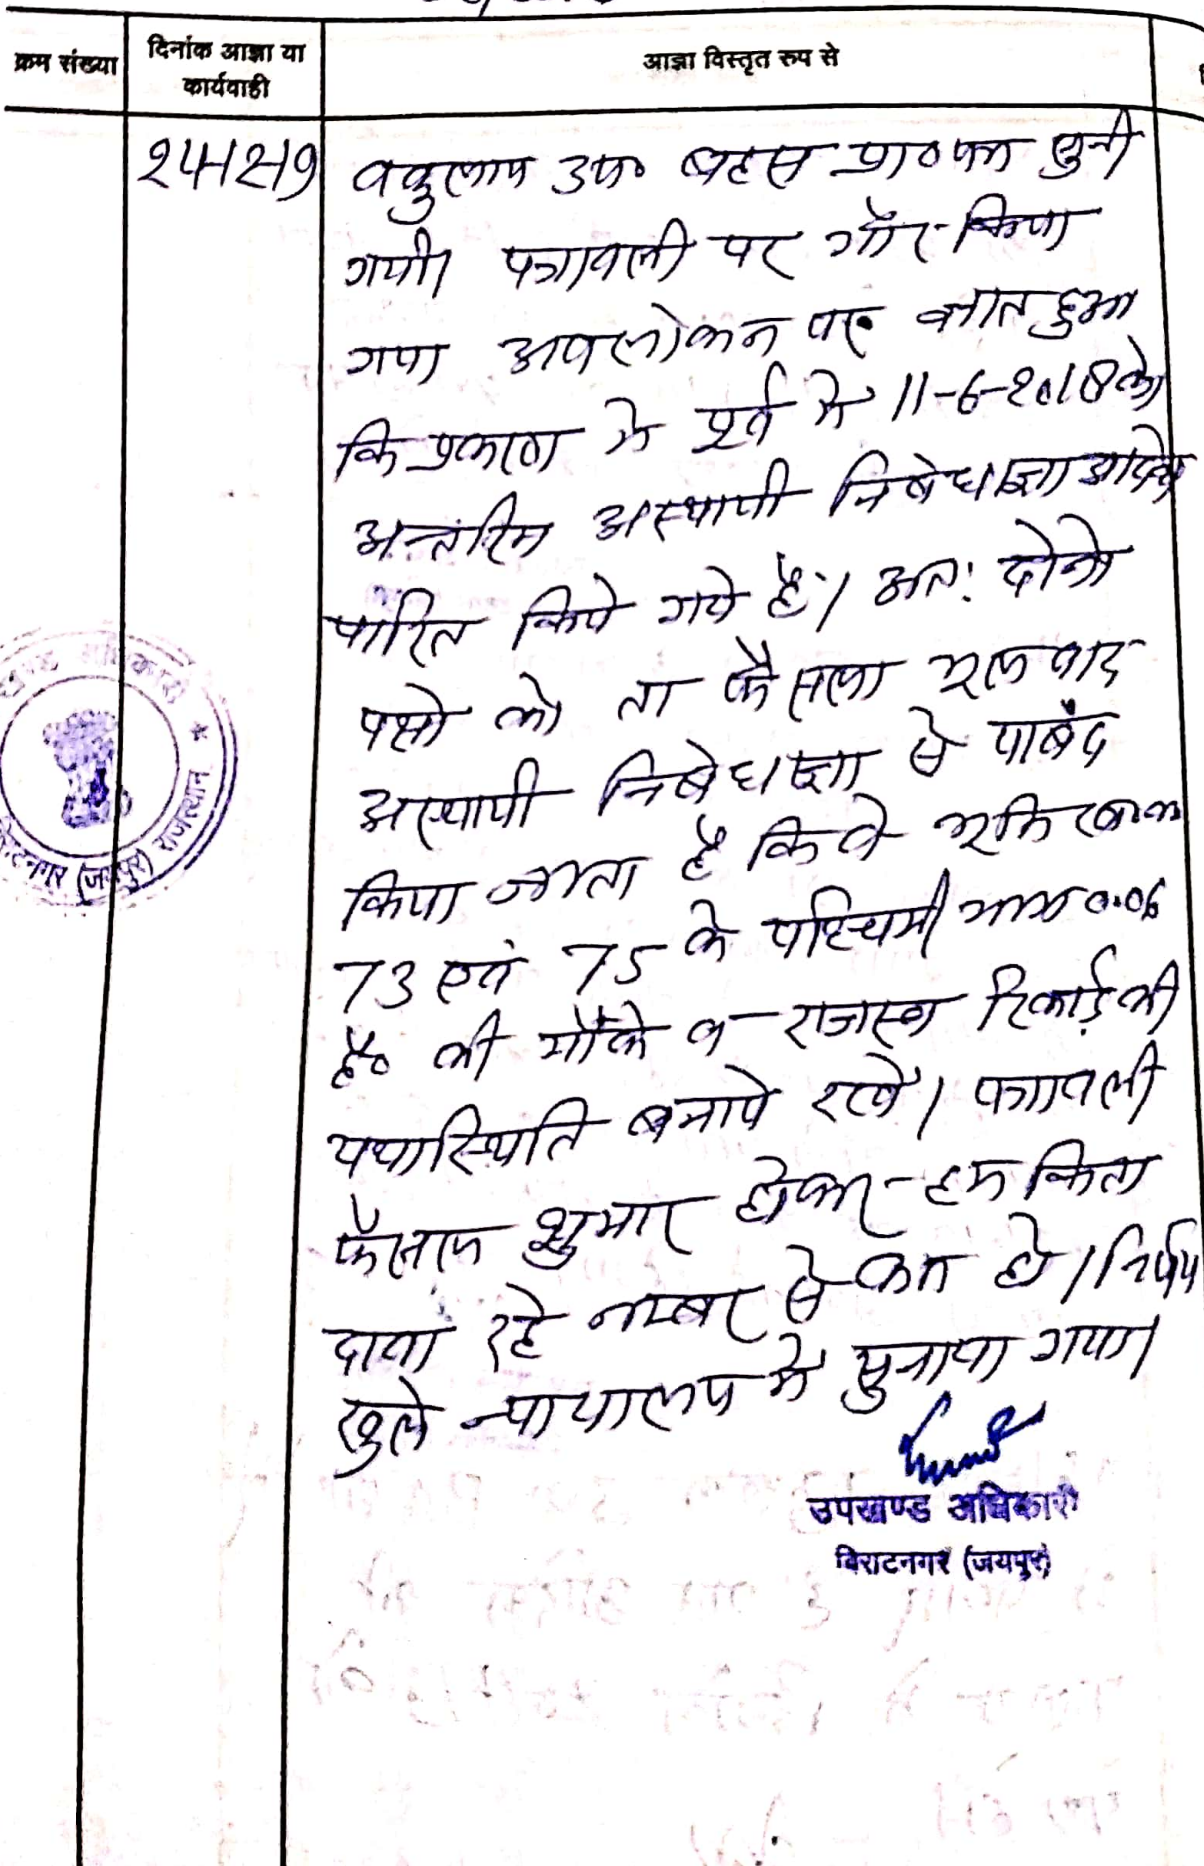 क्रम संख्या
दिनांक आज्ञा या
कार्यवाही
आज्ञा विस्तृत रुप से
वकुलाय उप० बहस प्रा०पत्र सुनी
गयी। पत्रावली पर गौर किया
गया अवलोकन पर ज्ञात हुआ
कि प्रकरण मे पूर्व मे 11-6-2018 को
अन्तरिम अस्थायी निषेधाज्ञा आदेश
पारित किये गये है। अतः दोनो
पक्षो को ता फैसला मूल वाद
अस्थायी निषेधाज्ञा से पाबंद
किया जाता है कि वे भूमि
73 एवं 75 के पश्चिमी भाग 0.06
है० की मौके व राजस्व रिकार्ड की
यथास्थिति बनाये रखें। पत्रावली
फैसल शुमार होकर हम किता
दावा रहे नम्बर से कम हो। निर्णय
खुले न्यायालय मे सुनाया गया।
उपखण्ड अधिकारी
विराटनगर (जयपुर)
खण्ड अधिकारी
विराटनगर (जयपुर) राजस्थान